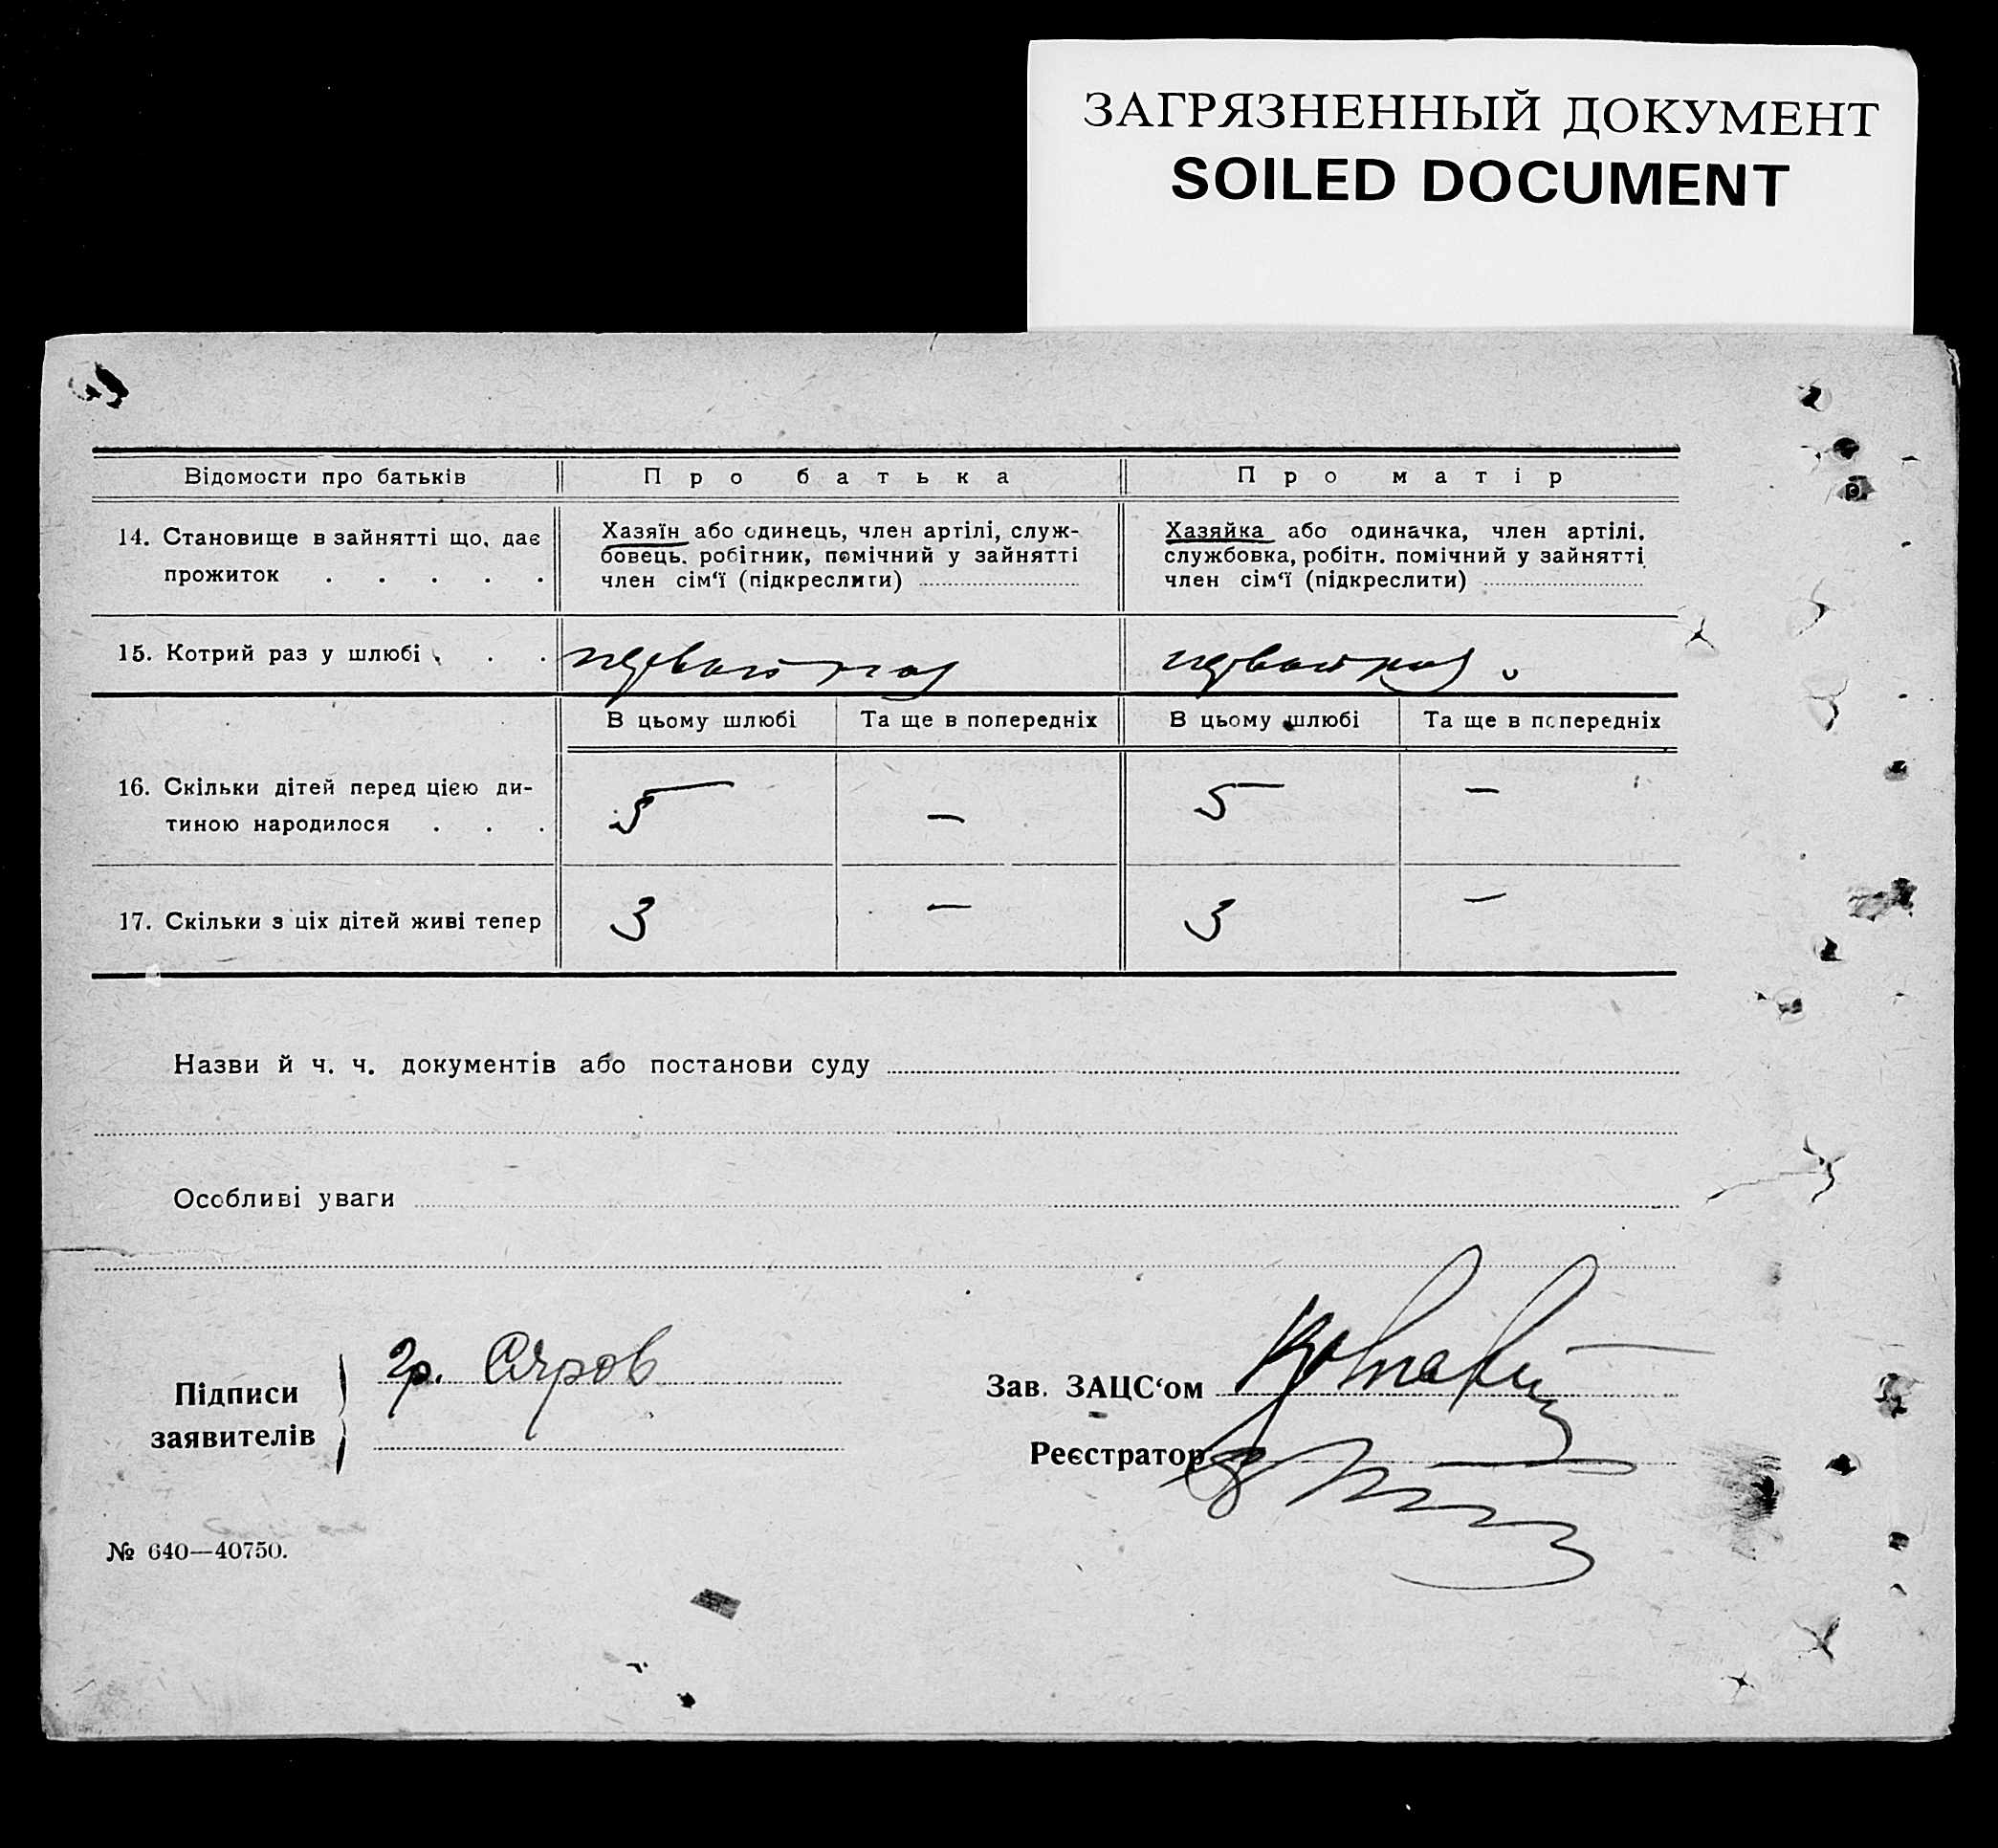 ЗАГРЯЗНЕННЫЙ ДОКУМЕНТ
SOILED DOCUMENT
Відомости про батьків Про батька Про матір
14. Становище в зайнятті що, дає прожиток . . . . .
Хазяїн або одинець, член артілі, служ-
бовець, робітник, помічний у зайнятті
член сім‘ї (підкреслити)
Хазяйка або одиначка, член артілі,
службовка, робітн. помічний у зайнятті
член сім‘ї (підкреслити)
15. Котрий раз у шлюбі . . .
В цьому шлюбі Та ще в попередніх В цьому шлюбі Та ще в попередніх
16. Скільки дітей перед цією ди-
тиною народилося . . .
5 — 5 —
17. Скільки з ціх дітей живі тепер 3 — 3 —
Назви й ч. ч. документів або постанови суду
Особливі уваги
Підписи
заявителів
гр.
Зав. ЗАЦС‘ом
Реєстратор
№ 640—40750.